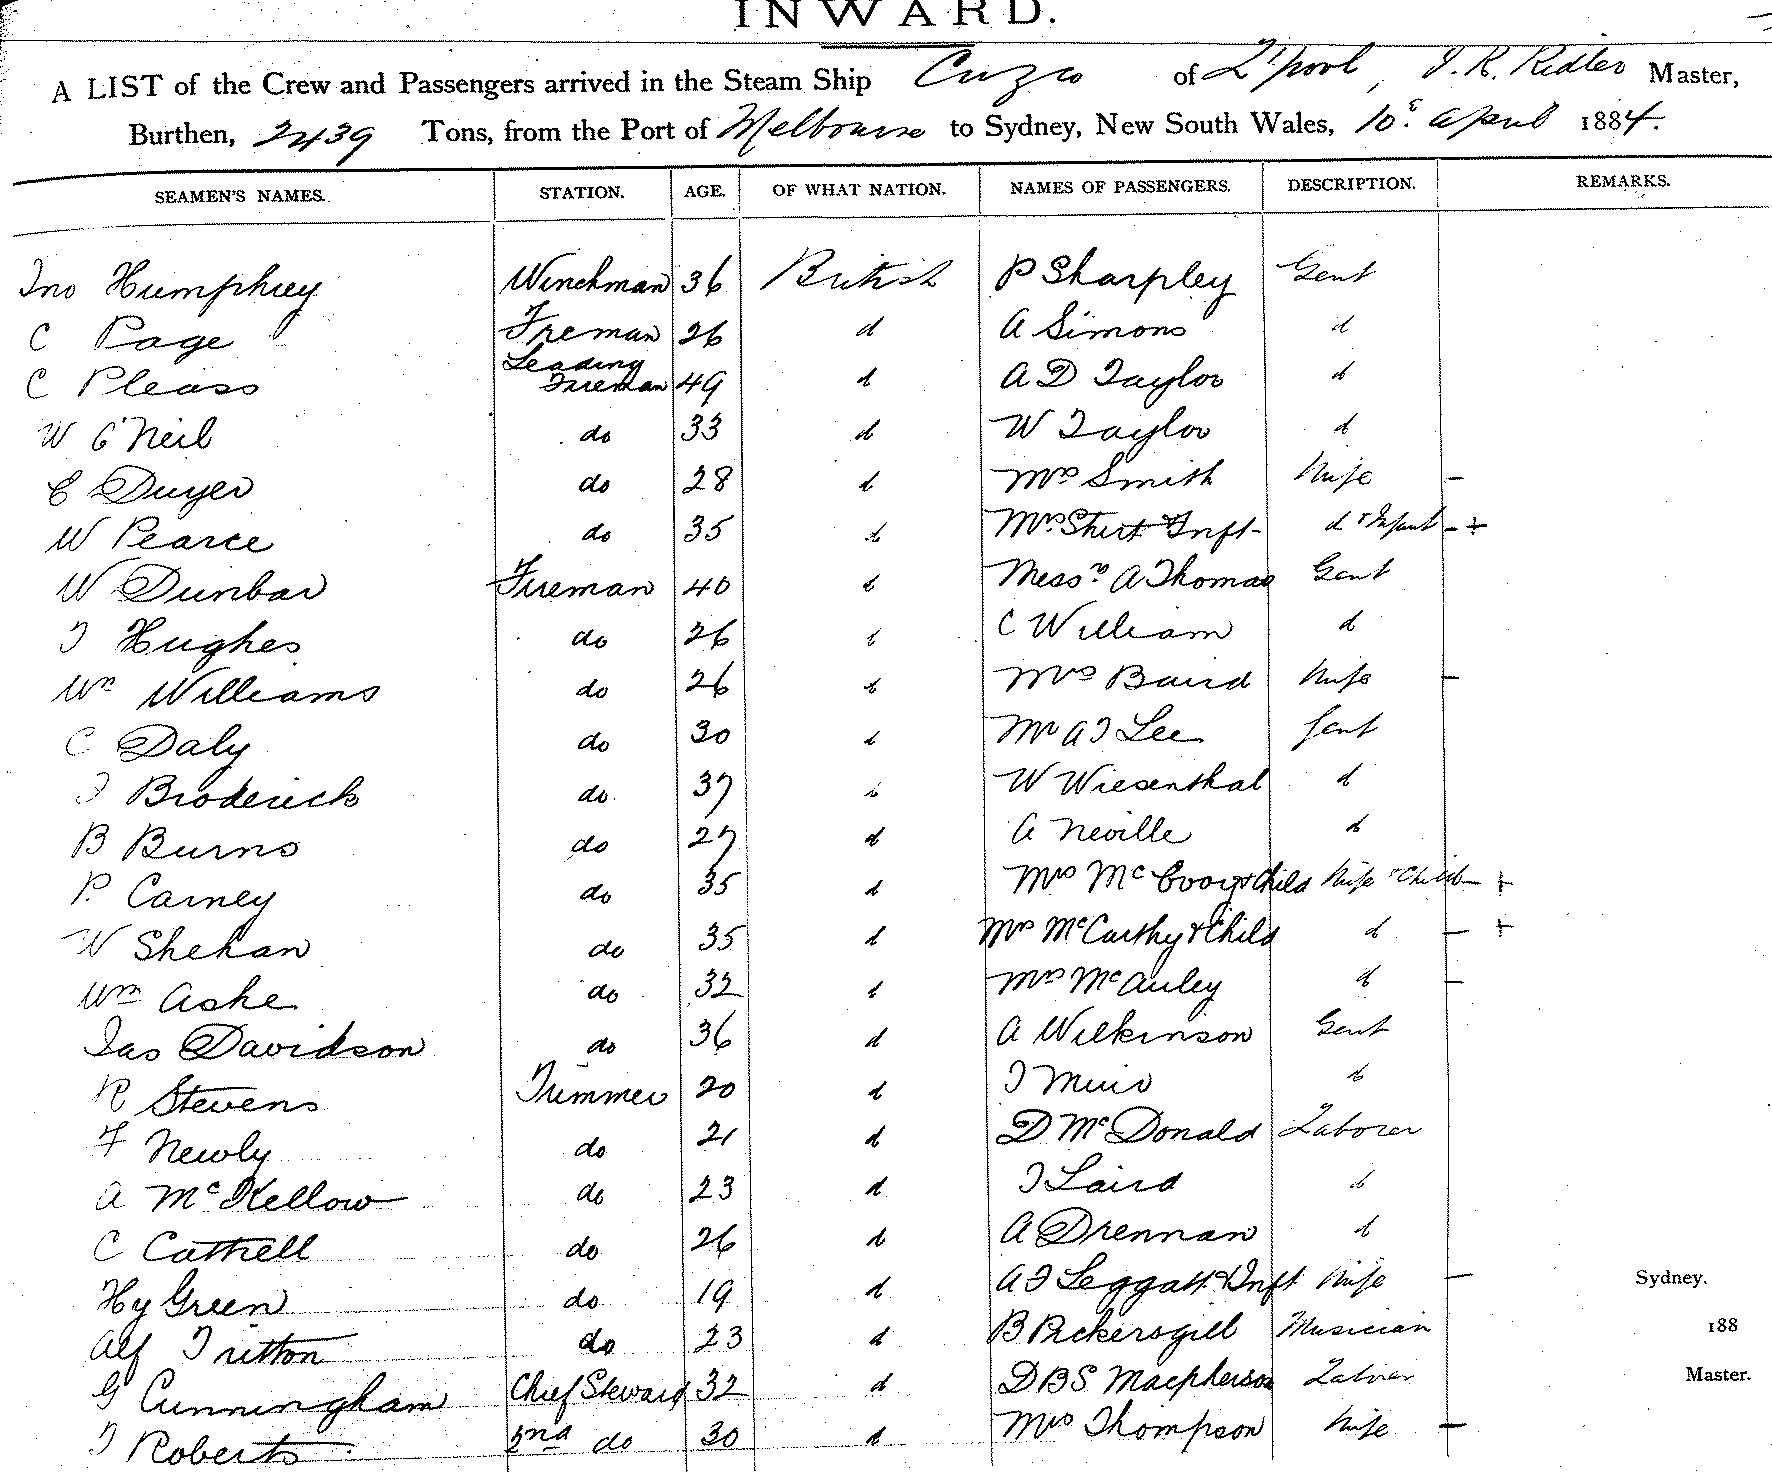 INWARD.
A LIST of the Crew and Passengers arrived in the Steam Ship Cuzco of L'pool, J. R. Ridler Master,
Burthen, 2439 Tons, from the Port of Melbourne to Sydney, New South Wales, 10. April 1884.
SEAMEN'S NAMES. STATION. AGE. OF WHAT NATION. NAMES OF PASSENGERS. DESCRIPTION. REMARKS.
Jno Humphrey Winchman 36 British P Sharpley Gent
C Page Fireman 26 d A Simons d
C Pleass Leading Fireman 49 d A D Taylor d
W O'Neil do 33 d W Taylor d
C Dwyer do 28 d Mrs Smith Wife –
W Pearce do 35 d Mrs Inft d & Infant – +
W Dunbar Fireman 40 d Messrs A Thomas Gent
J Hughes do 26 d C William d
Wm Williams do 26 d Mrs Baird Wife –
C Daly do 30 d Mr A J Lee Gent
J Broderick do 37 d W Wiesenthal d
B Burns do 27 d A Neville d
P. Carney do 35 d Mrs Mc & Child Wife & Child – +
W Shehan do 35 d Mrs McCarthy & Child d – +
Wm Ashe do 32 d Mrs McAuley d –
Jas Davidson do 36 d A Wilkinson Gent
R Stevens Trimmer 20 d J Muir d
F Newly do 21 d D McDonald Laborer
A McKellow do 23 d J Laird d
C Cattrell do 26 d A Drennan d
Hy Green do 19 d A J Leggatt & Inft Wife – Sydney.
Alf Tritton do 23 d B Pickersgill Musician 188
G Cunningham Chief Steward 32 d D B S Macpherson Laborer Master.
J Roberts 2nd do 30 d Mrs Thompson Wife –